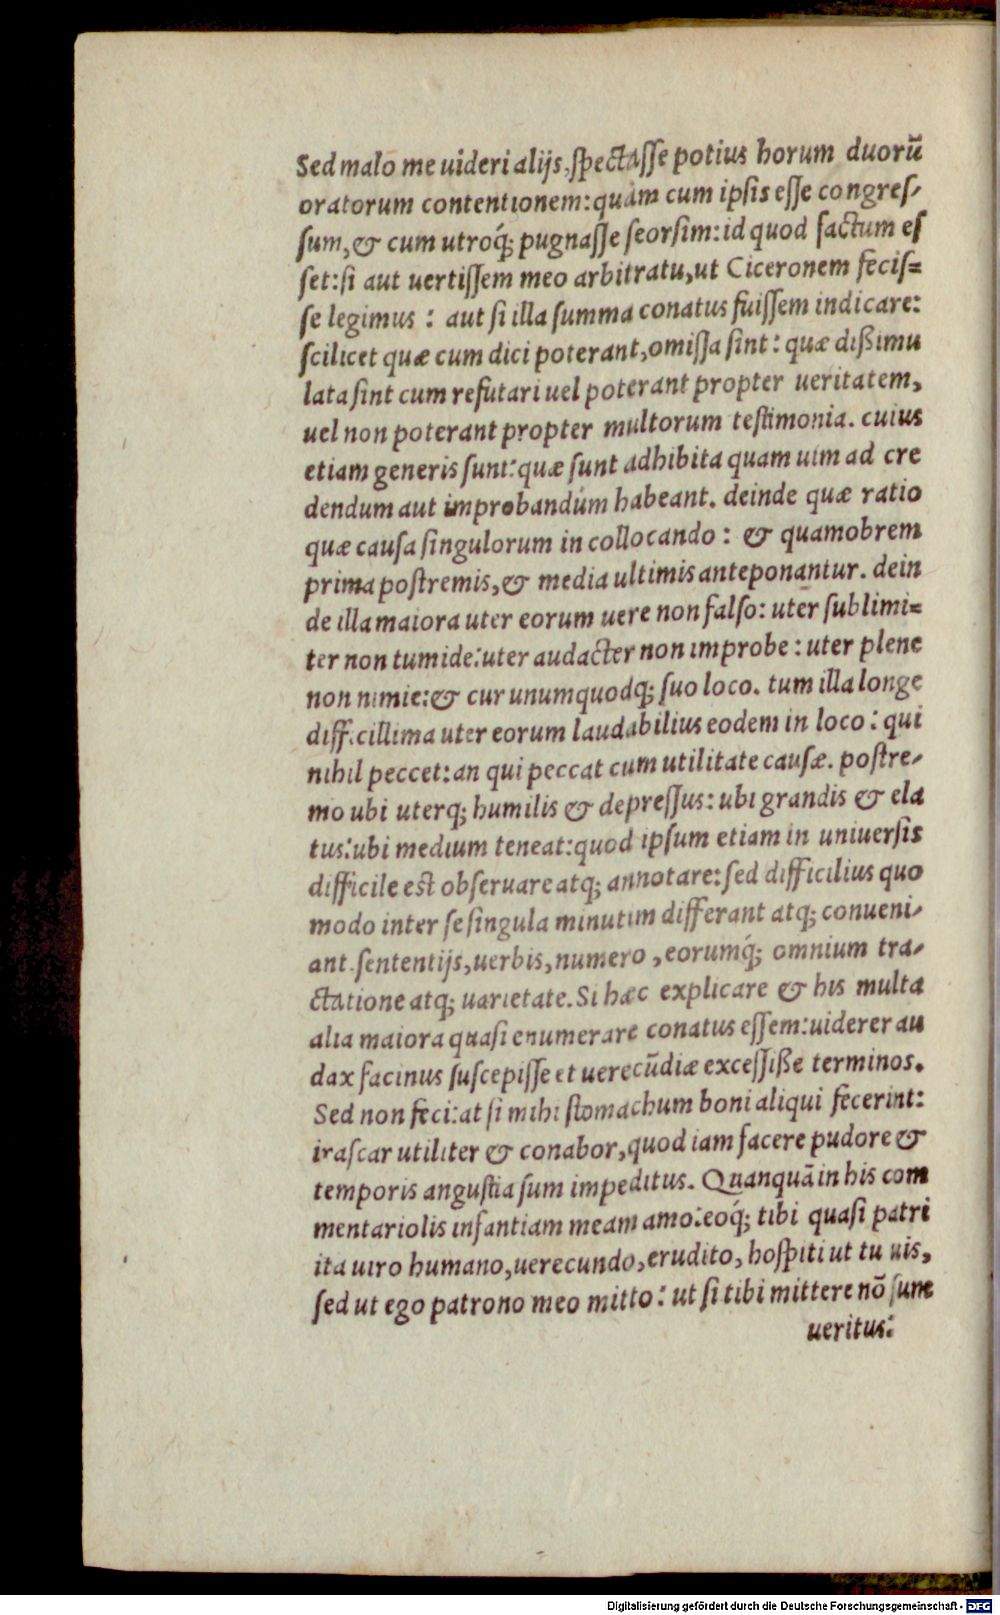 Sed malo me uideri alijs, spectasse potius horum duorū
oratorum contentionem: quàm cum ipsis esse congres-
sum, & cum utroq́; pugnasse seorsim: id quod factum es
set: si aut uertissem meo arbitratu, ut Ciceronem fecis=
se legimus : aut si illa summa conatus fuissem indicare:
scilicet quæ cum dici poterant, omissa sint : quæ dißimu
lata sint cum refutari uel poterant propter ueritatem,
uel non poterant propter multorum testimonia. cuius
etiam generis sunt: quæ sunt adhibita quam uim ad cre
dendum aut improbandúm habeant. deinde quæ ratio
quæ causa singulorum in collocando : & quamobrem
prima postremis, & media ultimis anteponantur. dein
de illa maiora uter eorum uere non falso: uter sublimi=
ter non tumide: uter audacter non improbe : uter plene
non nimie: & cur unumquodq; suo loco. tum illa longe
difficillima uter eorum laudabilius eodem in loco : qui
nihil peccet: an qui peccat cum utilitate causæ. postre-
mo ubi uterq; humilis & depressus: ubi grandis & ela
tus: ubi medium teneat: quod ipsum etiam in uniuersis
difficile est obseruare atq; annotare: sed difficilius quo
modo inter se singula minutim differant atq; conueni-
ant. sententijs, uerbis, numero , eorumq́; omnium tra-
ctatione atq; uarietate. Si hæc explicare & his multa
alia maiora quasi enumerare conatus essem: uiderer au
dax facinus suscepisse et uerecūdiæ excessiße terminos.
Sed non feci: at si mihi stomachum boni aliqui fecerint:
irascar utiliter & conabor, quod iam facere pudore &
temporis angustia sum impeditus. Quanquā in his com
mentariolis infantiam meam amo: eoq́; tibi quasi patri
ita uiro humano, uerecundo, erudito, hospiti ut tu uis,
sed ut ego patrono meo mitto : ut si tibi mittere nō sum
ueritus:
Digitalisierung gefördert durch die Deutsche Forschungsgemeinschaft - DFG